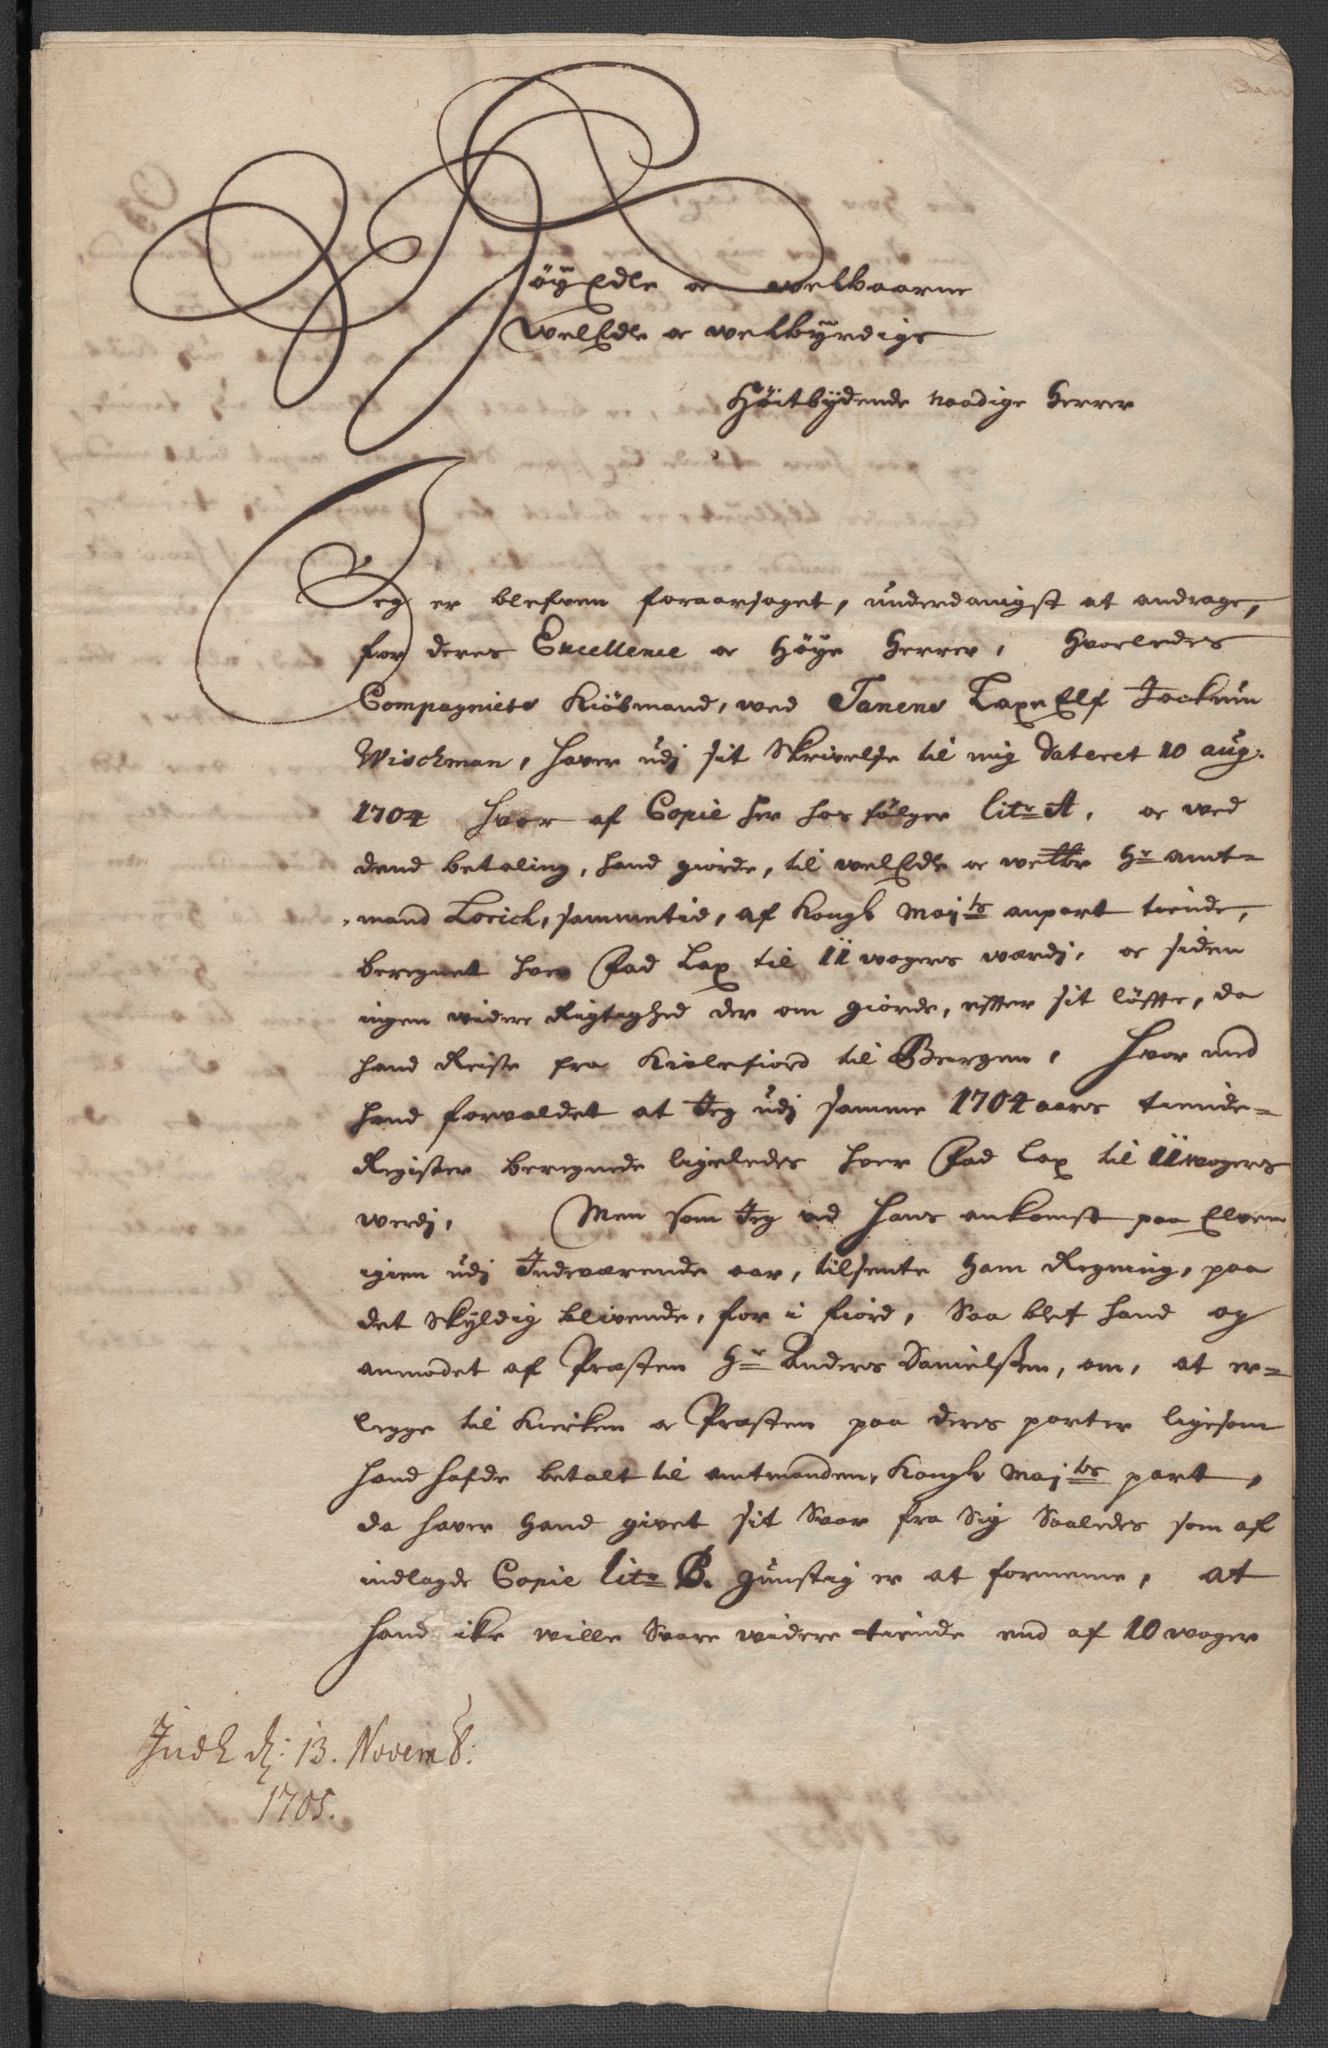 HöyEdle oc welbaarne
WelEdle oc welbÿrdige
Höitbÿdende naadige Herrer
Jeg er blefven foraarsaget, underdanigst at andrage,
for deres Excellence oc Höye Herrer, Hvorledes
Compagniets Kiöbmand, ved Tanens LaxeElf Jockum
Wischman, haver udj sit Skrivelse til mig dateret 10 aug:
1704 hvor af Copie her hos fölger litr A, oc ved
dend betaling, hand giorde, til welEdle oc welbr Hr amt-
mand Lorich, sammetid, af Kongl Maj:ts anpart tiende,
beregnet hver Fad Lax til 11 wogers værdj, oc siden
ingen widere Rigtighed der om giorde, efter sit löffte, da
hand Reiste fra Kiölefiord til Bergen, Hvor med
hand forvoldet at Jeg udj samme 1704 aars tiende-
Register beregnede ligeledes hver Fad Lax til 11 wogers
werdj, Men som Jeg ved hans ankomst paa Elven
igien udj Indeværende aar, tilsente ham Regning, paa
det skÿldig blivende, for i fiord, Saa blef hand og
anmodet af Præsten Hr Anders Danielssen, om, at er-
legge til Kirken oc Præsten paa deres parter ligesom
hand hafde betalt til amtmanden, Kongl Maj:ts part,
da haver hand givet sit Svar fra Sig Saaledes som af
indlagde Copie litr B. gunstig er at fornemme, at
hand ike wille Svare widere tiende end af 10 woger
Indl d: 13. Novemb:
1705.